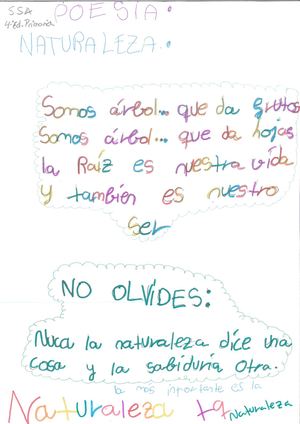 SSA POESIA:
4ºEd. Primaria
NATURALEZA.
Somos árbol... que da frutos
Somos árbol... que da hojas
la Raíz es nuestra vida
y también es nuestro
ser
NO OLVIDES:
Nuca la naturaleza dice una
cosa y la sabiduría Otra.
lo mas inportante es la
Naturaleza tq Naturaleza